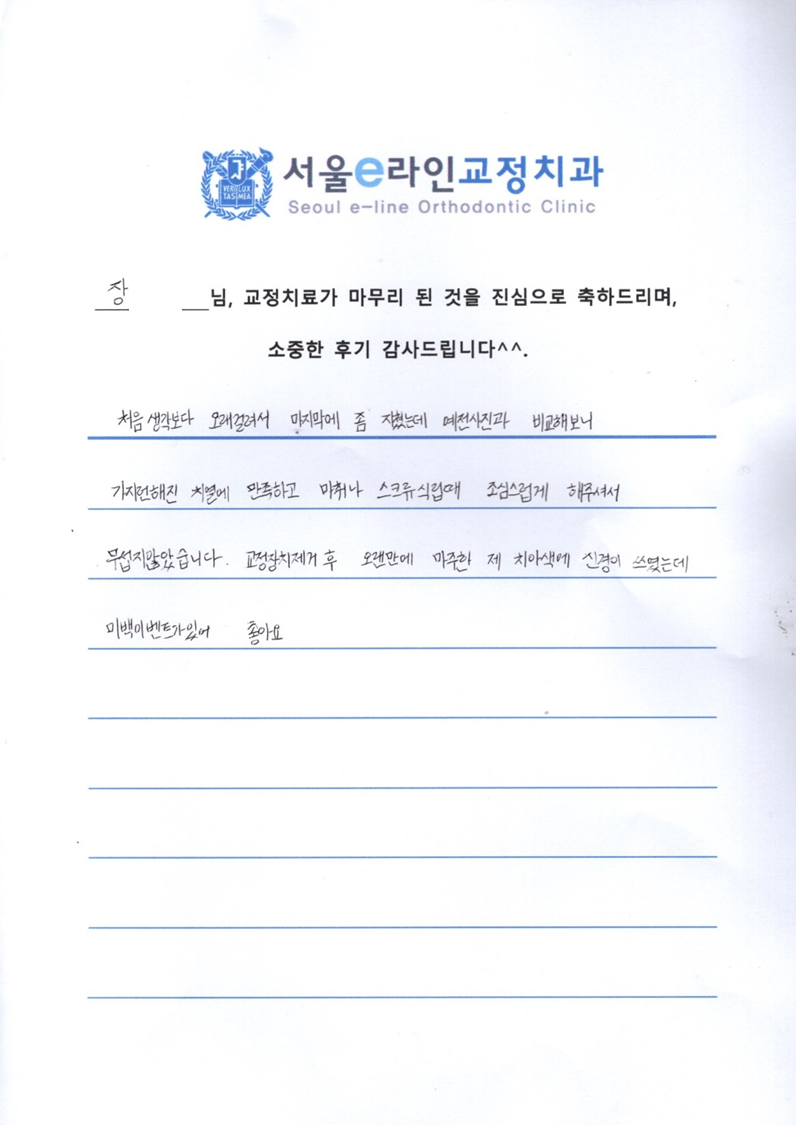 서울e라인교정치과
VERI LUX
TAS MEA
Seoul e-line Orthodontic Clinic
장 님, 교정치료가 마무리 된 것을 진심으로 축하드리며,
소중한 후기 감사드립니다^^.
처음 생각보다 오래걸려서 마지막에 좀 지쳤는데 예전사진과 비교해보니
가지런해진 치열에 만족하고 마취나 스크류식립때 조심스럽게 해주셔서
무섭지않았습니다. 교정장치제거 후 오랜만에 마주한 제 치아색에 신경이 쓰였는데
미백이벤트가있어 좋아요